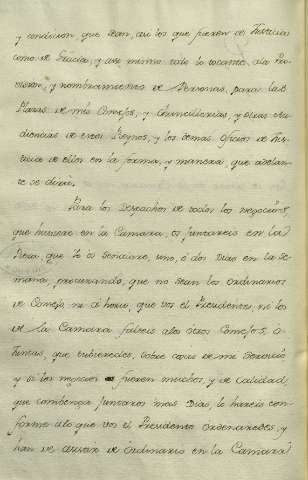 y condicion, que sean, asi los que fueren de Justicia
como de Gracia, y asi mismo todo lo tocante ala Pro
vission, y nombramiento de Personas, para las
Plazas de mis Consejos, y Chancillerias, y otras Au
diencias de estos Reynos, y los demas Oficios de Jus
ticia de ellos en la forma, y manera, que adelan
te se dirá.
Para los Despachos de todos los negocios,
que huviere en la Camara, os juntareis en la
Pieza, que Yo os señalare, uno, ó dos Dias en la se
mana, procurando, que no sean los ordinarios
de Consejo, ni á hora, que vos el Presidente, ni los
de la Camara falteis alos otros Consejos, ó
Juntas, que tubieredes, sobre cosas de mi Servicio,
y si los negocios fueren muchos, y de calidad,
que combenga juntaros mas Dias, lo hareis con
forme alo que vos el Presidente ordenaredes, y
han de assistir de ordinario en la Camara